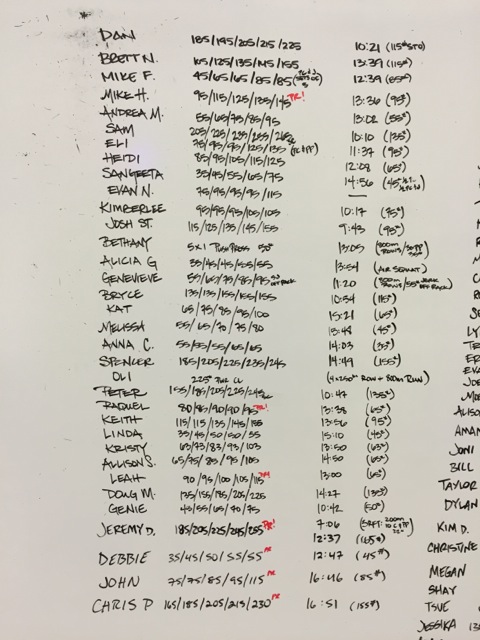 DAN 185/195/205/215/225 10:21 (115# STO)
BRETT N. 105/125/135/145/155 13:39 (115#)
MIKE F. 45/65/65/85/85 12:39 (85#)
MIKE H. 95/115/125/135/145 PR! 13:36 (95#)
ANDREA M. 55/65/75/85/95 13:02 (55#)
SAM 205/225/235/255/265 10:10 (135#)
ELI 75/95/95/125/135 11:37 (95#)
HEIDI 85/95/105/115/125 12:08 (65#)
SANGEETA 35/45/55/65/75 14:56
EVAN N. 75/95/95/95/115 —
KIMBERLEE 95/95/95/105/105 10:17 (75#)
JOSH ST. 115/125/135/145/155 9:43 (95#)
BETHANY 5x1 PUSH PRESS 50# 13:05
ALICIA G 35/45/45/505/55 13:54 (AIR SQUAT)
GENEVIEVE 55/65/75/85/95 11:20
BRYCE 135/135/155/155/155 10:54 (115#)
KAT 65/75/85/95/100 15:21 (65#)
MELISSA 55/65/70/75/80 13:48 (45#)
ANNA C. 55/55/55/65/65 14:03 (35#)
SPENCER 185/205/225/235/245 14:49 (155#)
OLI 225# (4x250m ROW + 80m RUN)
PETER 155/185/205/225/245 10:47 (135#)
RAQUEL 80/85/90/90/95 PR! 13:38 (65#)
KEITH 115/115/135/145/155 13:56 (95#)
LINDA 35/45/50/50/55 15:10 (45#)
KRISTY 63/73/83/93/103 13:50 (63#)
ALLISON S. 65/75/85/95/105 14:50 (65#)
LEAH 90/95/100/105/115 PR! 13:00 (65#)
DOUG M. 135/155/185/205/225 14:27 (135#)
GENIE 45/55/65/70/75 10:42 (50#)
JEREMY D. 185/205/225/245/255 PR! 7:06
12:37 (165#)
DEBBIE 35/45/50/55/55 PR 12:47 (45#)
JOHN 75/75/85/95/115 PR 16:46 (85#)
CHRIS P 165/185/205/215/230 PR 16:51 (155#)
ALISO
AMAN
JONI
BILL
TAYLOR
DYLAN
KIM D.
CHRISTINE
MEGAN
SHAY
TSUE
JESSIKA